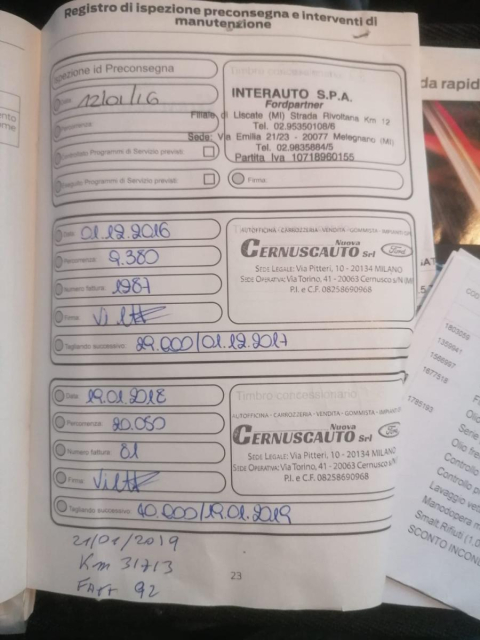 Registro di ispezione preconsegna e interventi di
manutenzione
Ispezione id Preconsegna
Data 12/01/16
Percorrenza:
Controllato Programmi di Servizio previsti
Eseguito Programmi di Servizio previsti
Timbro concessionario
INTERAUTO S.P.A.
Fordpartner
Filiale di Liscate (MI) Strada Rivoltana Km 12
Tel. 02.95350108/6
Sede: Via Emilia 21/23 - 20077 Melegnano (MI)
Tel. 02.9835884/5
Partita Iva 10718960155
Firma:
Data: 01.12.2016
Percorrenza: 9.380
Numero fattura: 1987
Firma:
Tagliando successivo: 29.000/01.12.2017
AUTOFFICINA - CARROZZERIA - VENDITA - GOMMISTA
Nuova
CERNUSCAUTO Srl
Ford
SEDE LEGALE: Via Pitteri, 10 - 20134 MILANO
SEDE OPERATIVA: Via Torino, 41 - 20063 Cernusco s/N (MI)
P.I. e C.F. 08258690968
Data: 19.01.2018
Percorrenza: 20.050
Numero fattura: 81
Firma:
Tagliando successivo: 40.000/19.01.2019
Timbro concessionario
AUTOFFICINA - CARROZZERIA - VENDITA - GOMMISTA
Nuova
CERNUSCAUTO Srl
Ford
SEDE LEGALE: Via Pitteri, 10 - 20134 MILANO
SEDE OPERATIVA: Via Torino, 41 - 20063 Cernusco s/N (MI)
P.I. e C.F. 08258690968
21/01/2019
Km 31713
FATT 92
23
da rapid
1803059
1359941
1566997
1677918
1785193
Olio
Serie
Olio fre
Controllo
Controllo p
Lavaggio vet
Manodopera m
Smalt.Rifiuti (1.0
SCONTO INCON